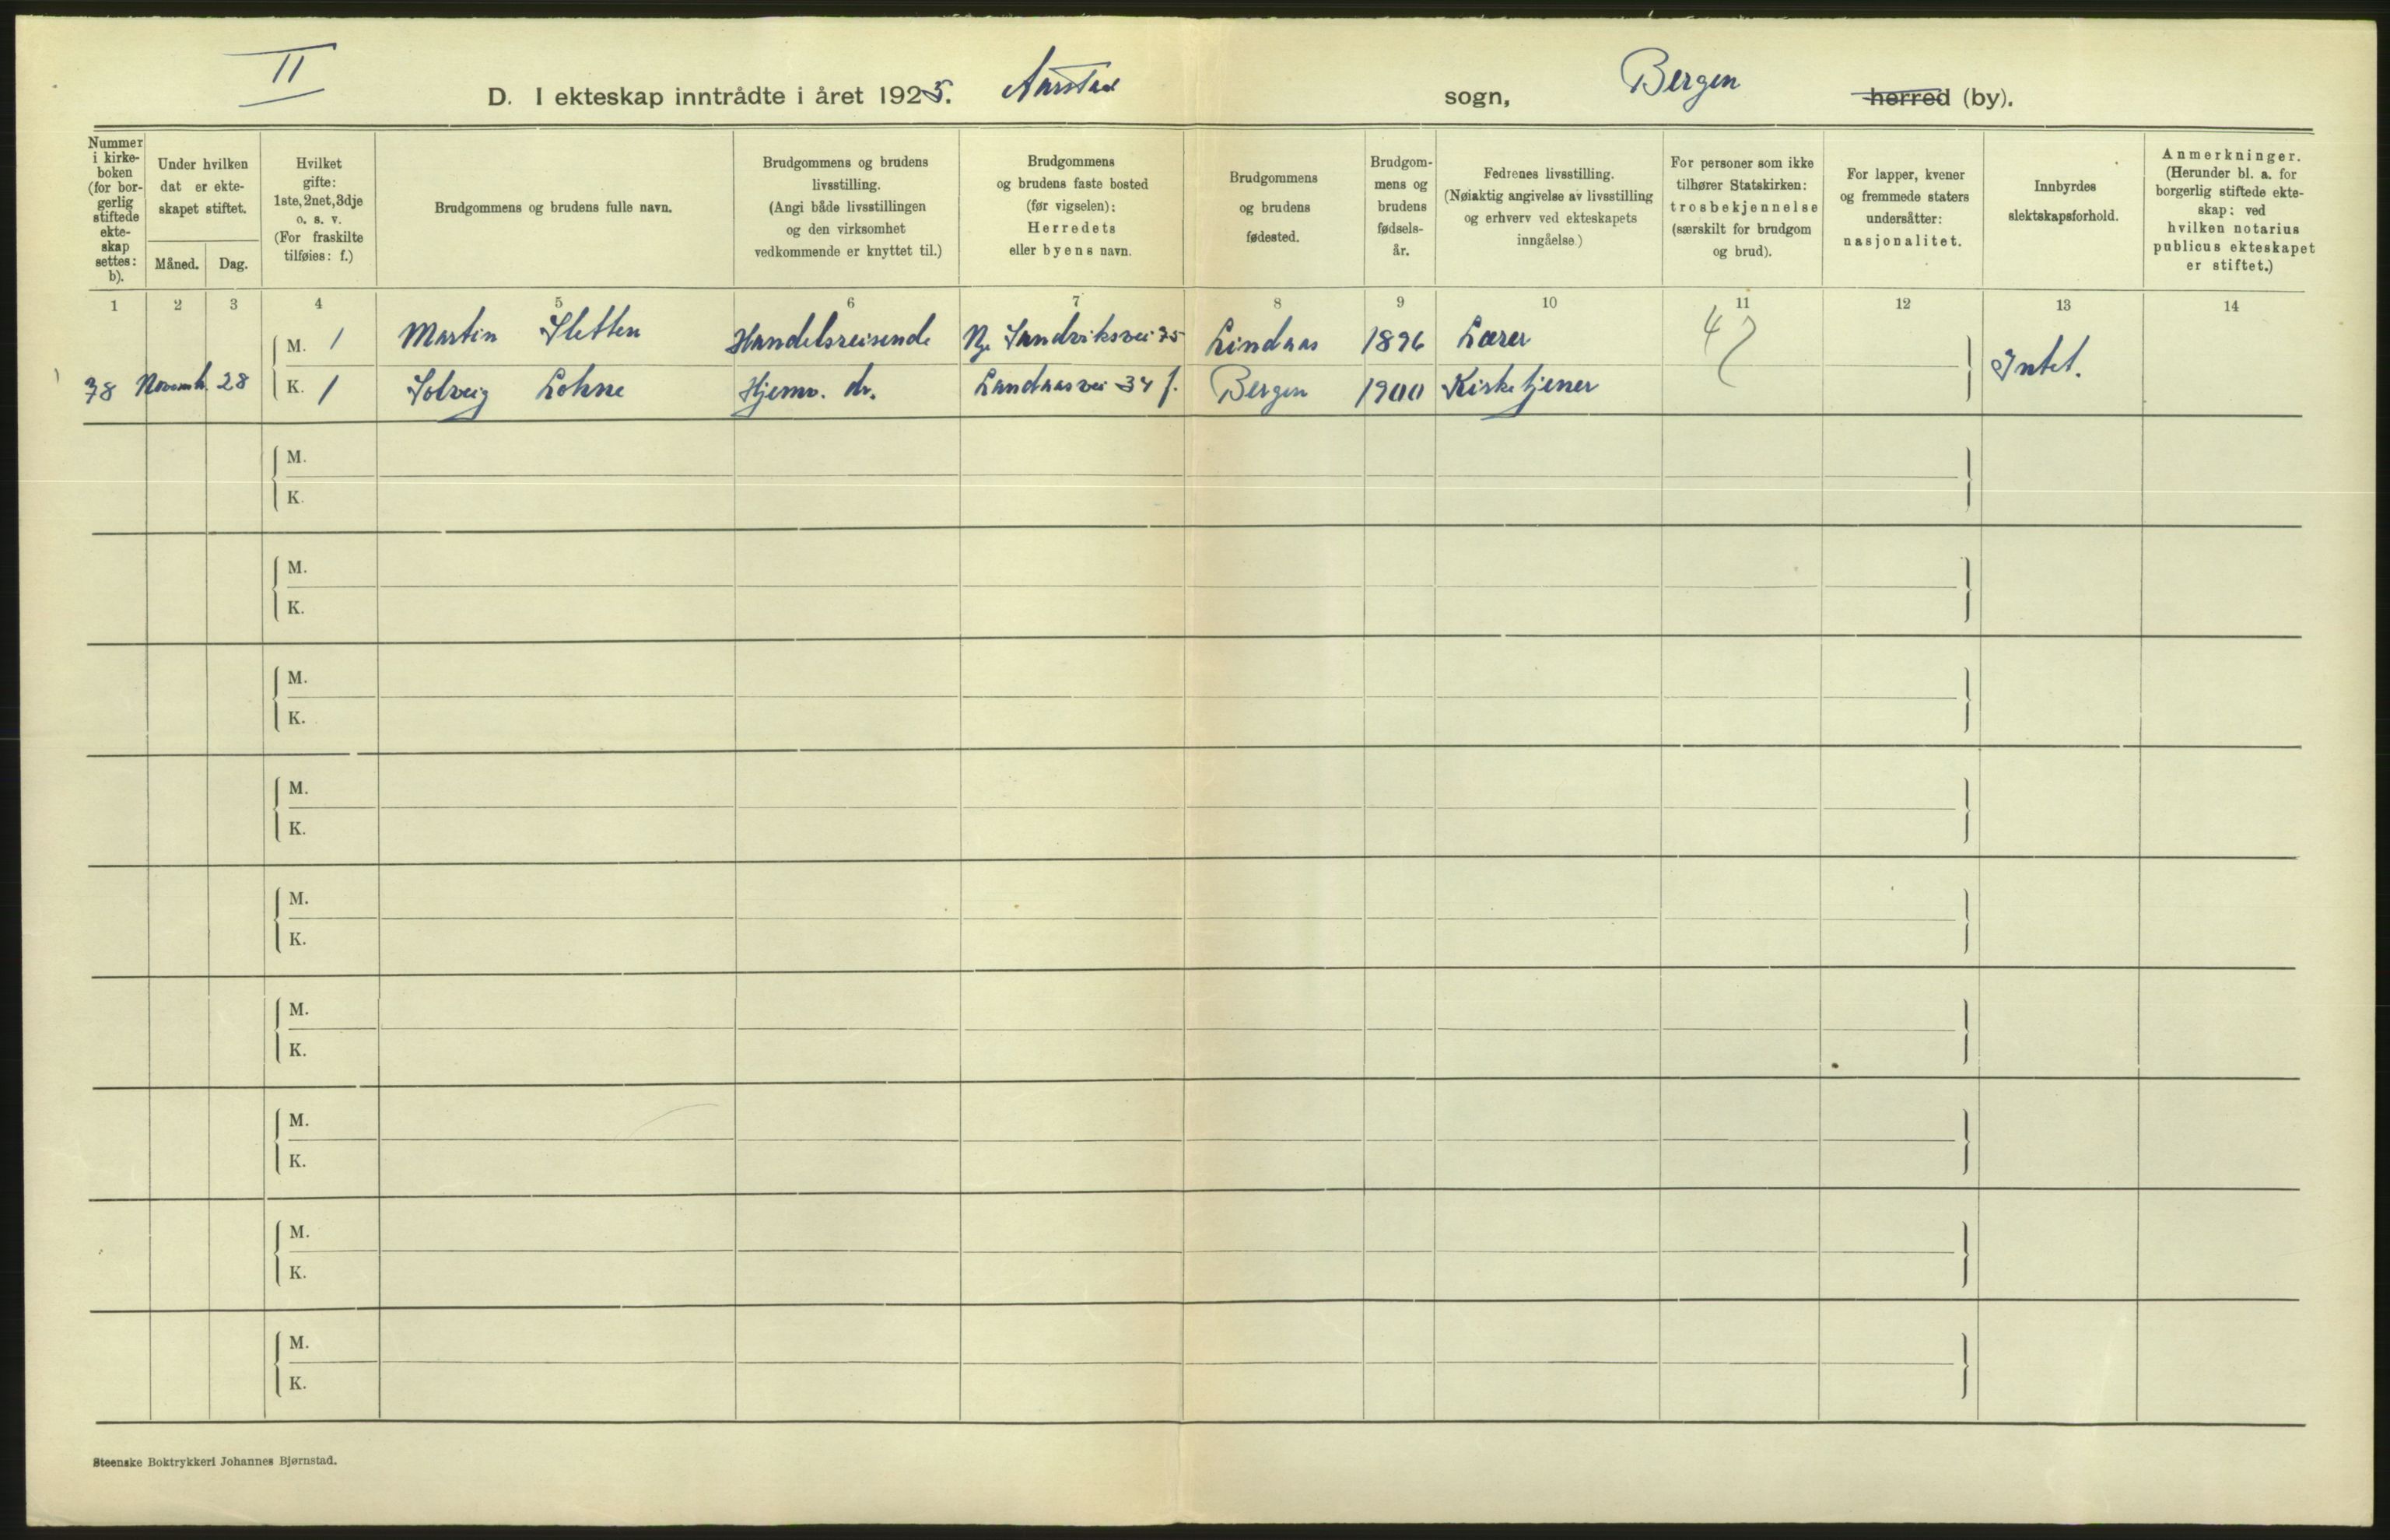 II
D. I ekteskap inntrådte i året 1925. Aarstad sogn, Bergen herred (by).
Nummer
i kirke-
boken
(for bor-
gerlig
stiftede
ekte-
skap
settes:
b).
Under hvilken
dat er ekte-
skapet stiftet.
Måned.
Dag.
Hvilket
gifte:
1ste, 2net, 3dje
o. s. v.
(For fraskilte
tilføies: f.)
Brudgommens og brudens fulle navn.
Brudgommens og brudens
livsstilling.
(Angi både livsstillingen
og den virksomhet
vedkommende er knyttet til.)
Brudgommens
og brudens faste bosted
(før vigselen):
Herredets
eller byens navn.
Brudgommens
og brudens
fødested.
Brudgom-
mens og
brudens
fødsels-
år.
Fedrenes livsstilling.
(Nøiaktig angivelse av livsstilling
og erhverv ved ekteskapets
inngåelse)
For personer som ikke
tilhører Statskirken:
trosbekjennelse
(særskilt for brudgom
og brud).
For lapper, kvener
og fremmede staters
undersåtter:
nasjonalitet.
Innbyrdes
slektskapsforhold.
Anmerkninger.
(Herunder bl. a. for
borgerlig stiftede ekte-
skap: ved
hvilken notarius
publicus ekteskapet
er stiftet.)
1 2 3 4 5 6 7 8 9 10 11 12 13 14
M. 1 Martin Sletten Handelsreisende Ny Sandviksvei 75 Lindaas 1896 Lærer
78 Novemb. 28 K. 1 Solveig Lohne Hjemv. dr. Landaasvei 34 f. Bergen 1900 Kirketjener Intet.
M.
K.
M.
K.
M.
K.
M.
K.
M.
K.
M.
K.
M.
K.
M.
K.
M.
K.
Steenske Boktrykkeri Johannes Bjørnstad.